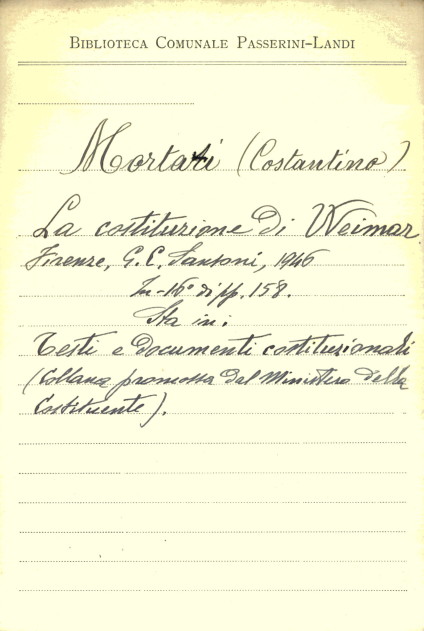 BIBLIOTECA COMUNALE PASSERINI-LANDI
Mortati (Costantino)
La costituzione di Weimar
Firenze, G. C. Sansoni, 1946
In-16° di pp. 158.
Sta in:
Testi e documenti costituzionali
(Collana promossa dal Ministero della
Costituente).